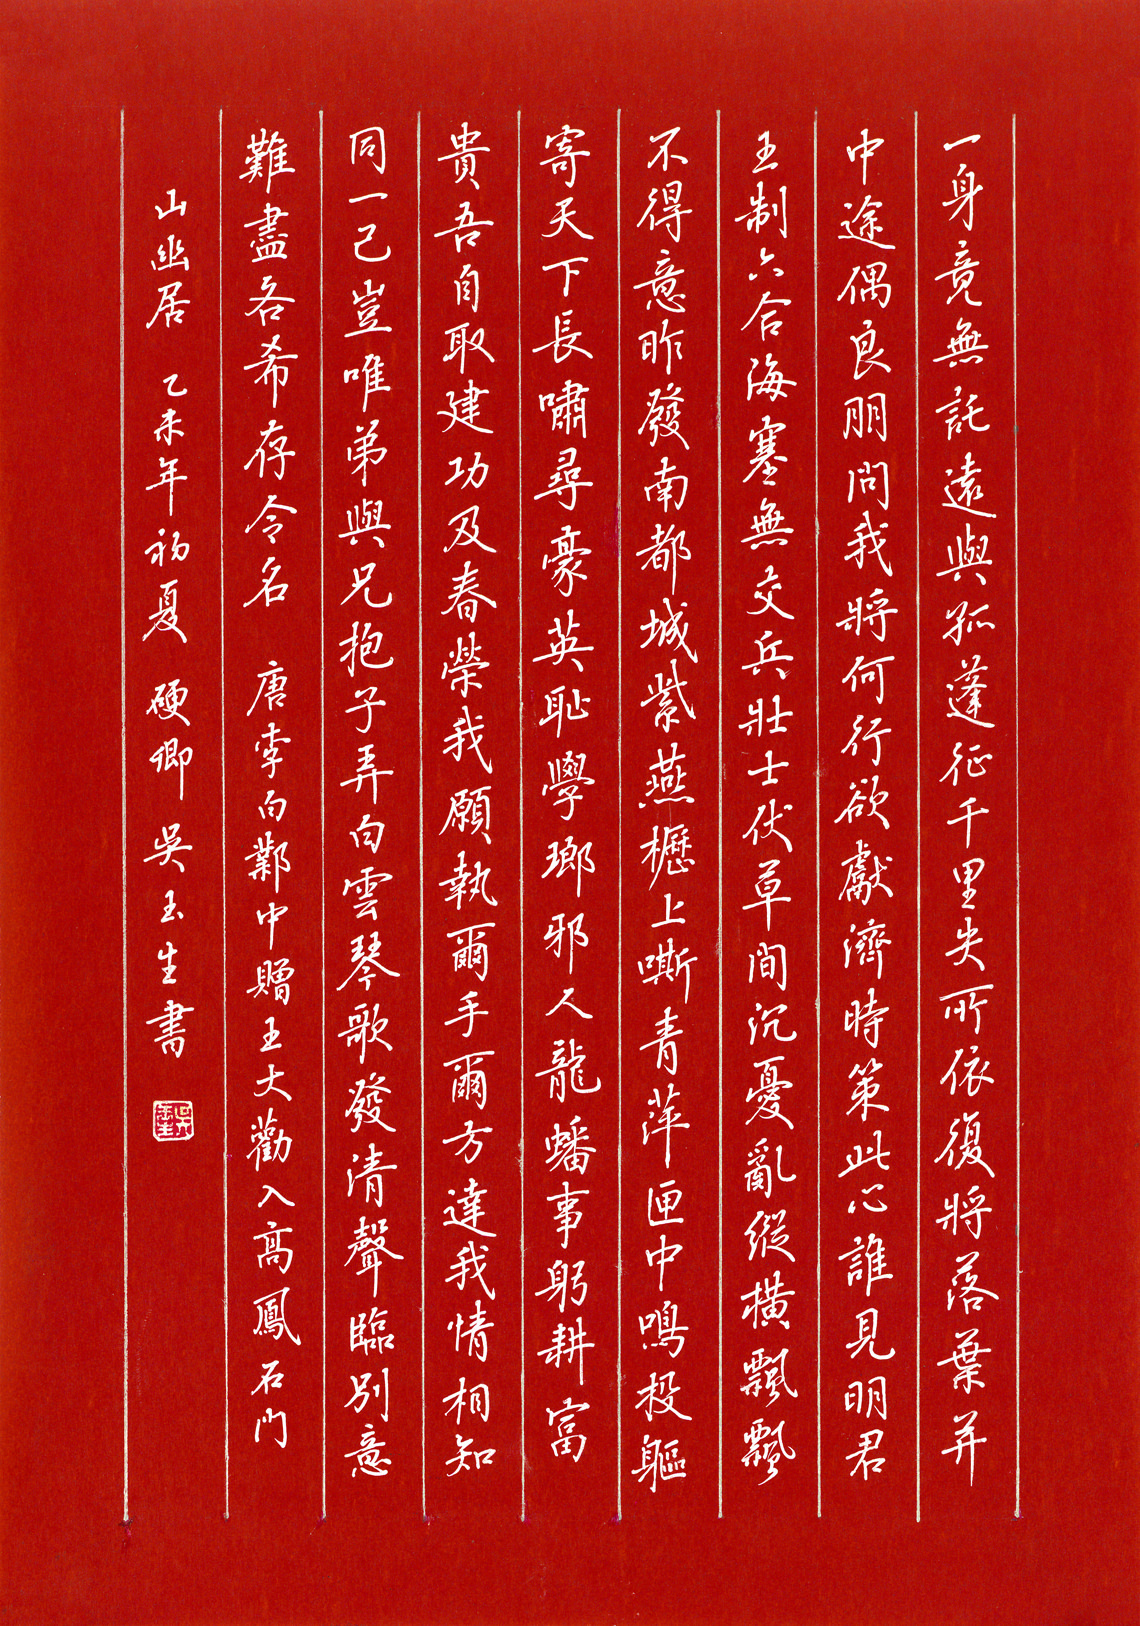 一身竟無託遠與孤蓬征千里失所依復將落葉并
中途偶良朋問我將何行欲獻濟時策此心誰見明君
王制六合海塞無交兵壯士伏草間沉憂亂縱橫飄飄
不得意昨發南都城紫燕櫪上嘶青萍匣中鳴投軀
寄天下長嘯尋豪英恥學瑯邪人龍蟠事躬耕富
貴吾自取建功及春榮我願執爾手爾方達我情相知
同一己豈唯弟與兄抱子弄白雲琴歌發清聲臨別意
難盡各希存令名 唐李白鄴中贈王大勸入高鳳石門
山幽居 乙未年初夏 硬卿 吳玉生書
吳玉生